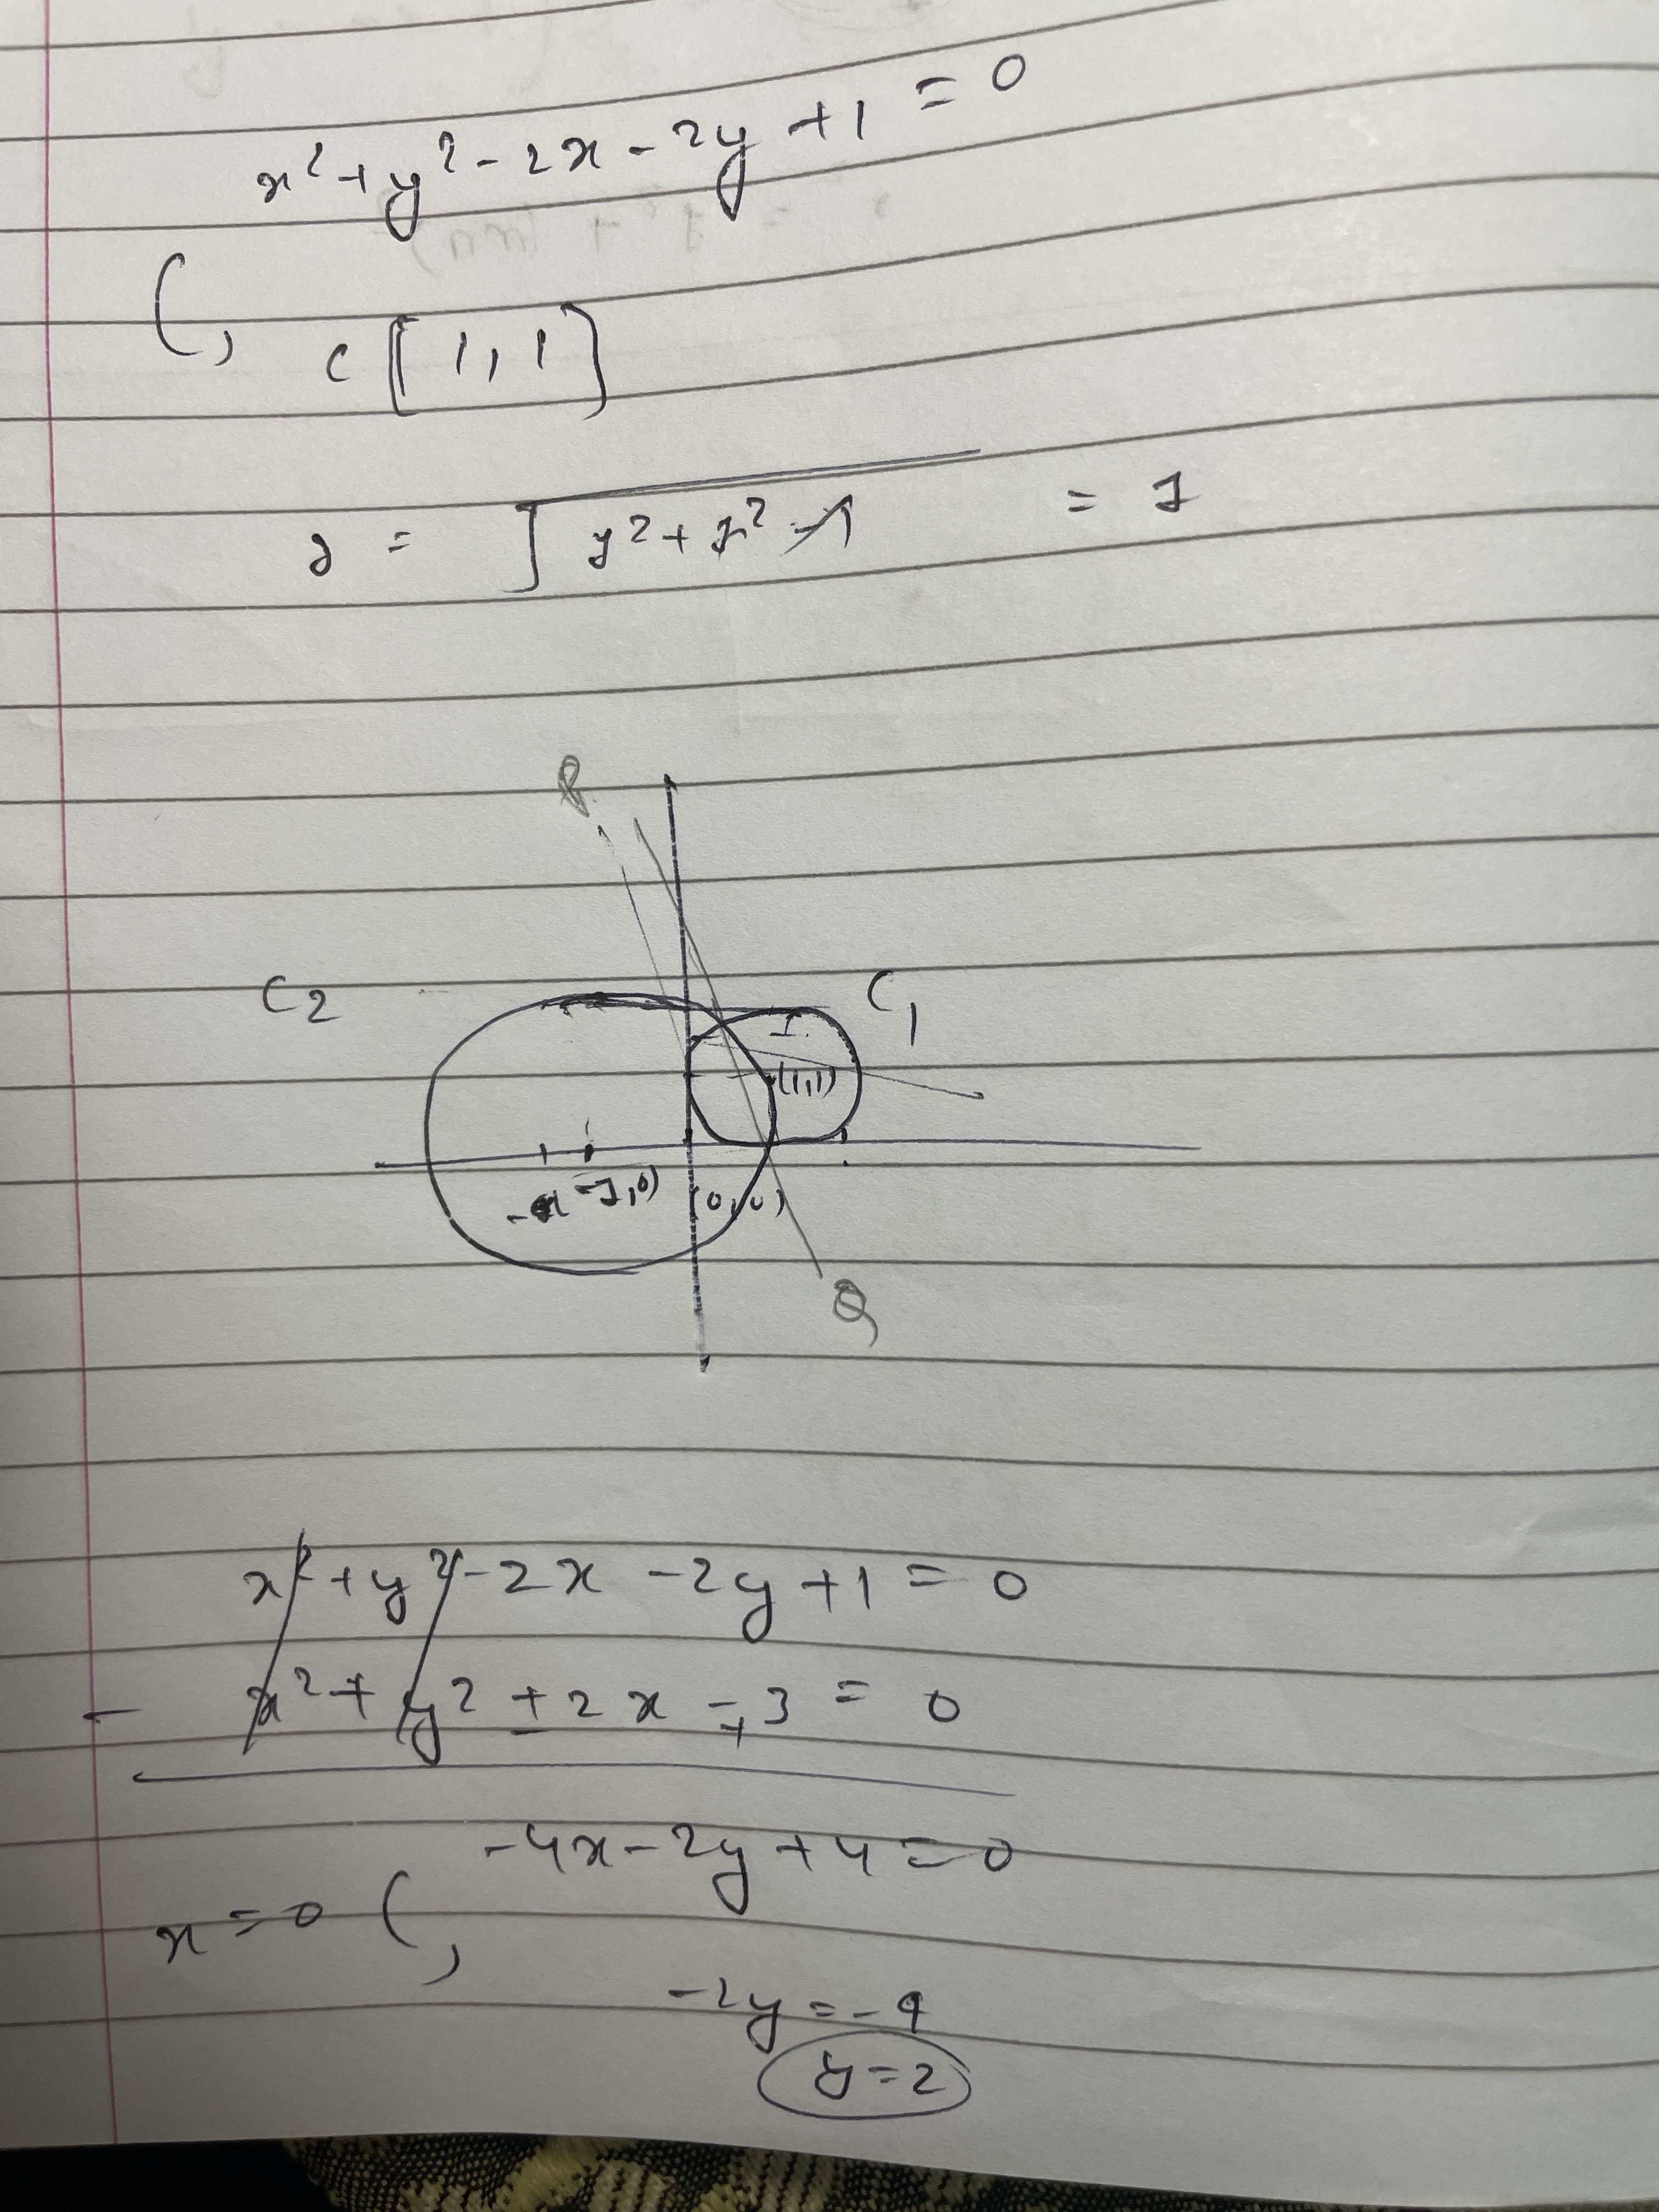 x²+y²-2x-2y+1=0
C, C[1,1]
r = √1²+1²-1 = 1
P
C2 C1
(1,1)
-1,0) (0,0)
Q
x²+y²-2x-2y+1=0
- x²+y²±2x-+3=0
-4x-2y+4=0
x=0 C,
-2y=-4
y=2